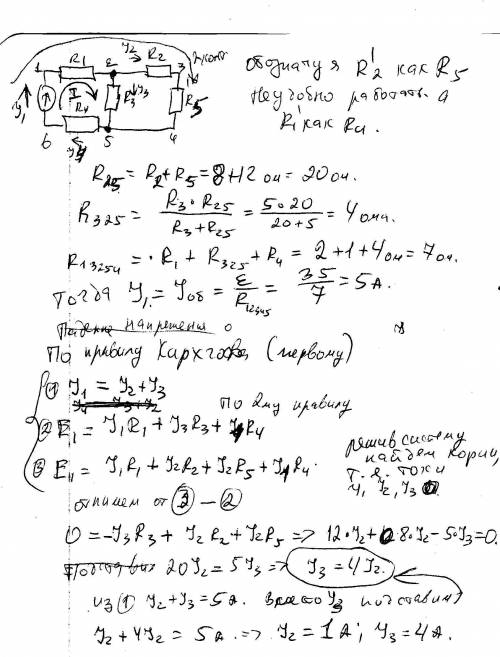 У2 R2 2конт
R1 ε 3
1 R3 У3 R5
У1 I R4
6 У4 5 4
обозначу я R2' как R5
Неудобно работать. а
R1' как R4.
R25 = R2 + R5 = 8 + 12 ом = 20 ом.
R325 = R3 · R25 / R3 + R25 = 5·20 / 20+5 = 4 ома.
R13254 = R1 + R325 + R4 = 2 + 1 + 4 ом = 7 ом.
тогда У1 = Уоб = ε / R12345 = 35 / 7 = 5 А.
Падение напряжения
По правилу Кирхгофа (первому)
① У1 = У2 + У3
По 2му правилу
② EI = У1R1 + У3R3 + У1R4
③ EII = У1R1 + У2R2 + У2R5 + У1R4.
решив систему
найдем корни,
т.е. токи
У1, У2, У3
отнимем от ③ – ②
0 = -У3R3 + У2R2 + У2R5 => 12·У2 + 8·У2 - 5У3 = 0.
20У2 = 5У3 => У3 = 4У2.
из ① У2 + У3 = 5 А. вместо У3 подставим
У2 + 4У2 = 5 А => У2 = 1 А; У3 = 4 А.